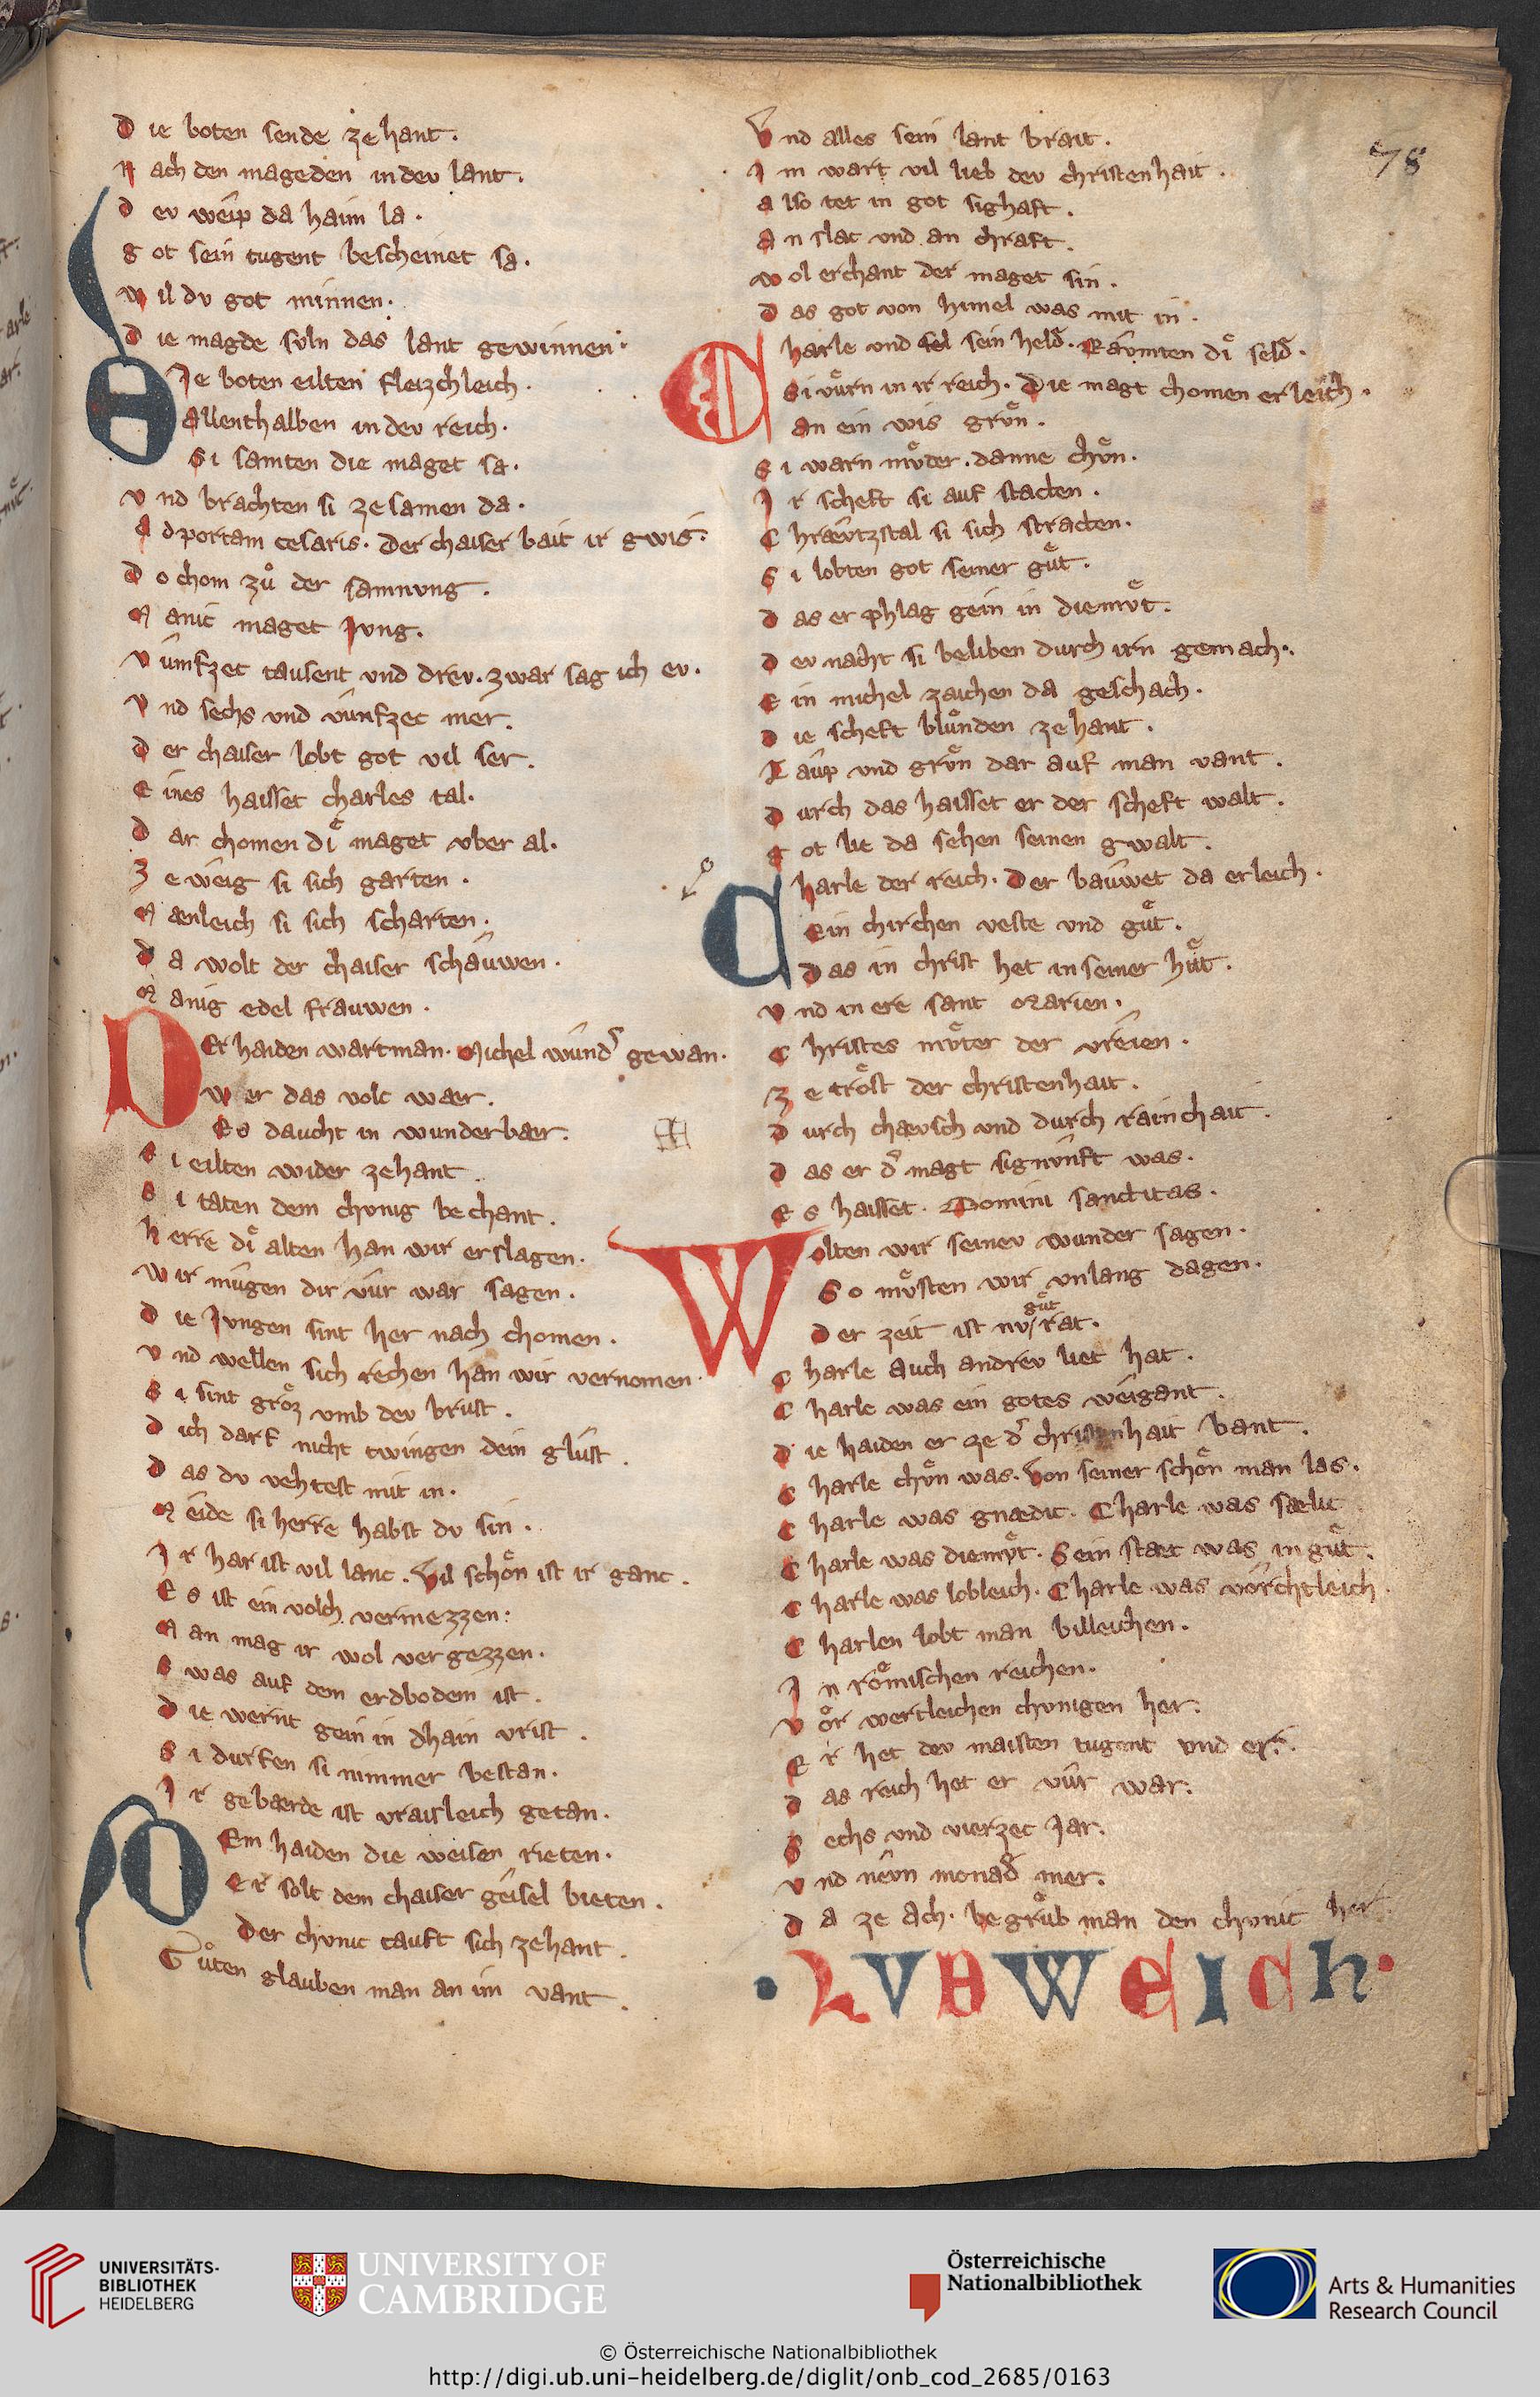 die boten sende ze hant.
nach den mageden in dev lant.
dev weip da haim la.
got sein tugent bescheinet sa.
wil dv got minnen.
die magde svln das lant gewinnen.
DJe boten eilten fleizchleich.
Allenthalben in dev reich.
Si samten die maget sa.
vnd brachten si ze samen da.
Ad portam cesaris. Der chaiser bait ir gwis.
Do chom zů der samnvng.
Manic maget Jvng.
vůmfzec tausent vnd drev. zwar sag ich ev.
vnd sechs vnd vůnfzec mer.
der chaiser lobt got vil ser.
Eines haisset charles tal.
dar chomen diͤ maget vber al.
Ze weig si sich garten.
Mænleich si sich scharten.
da wolt der chaiser schauwen.
Manig edel frauwen.
DEr haiden wartman. Michel wund͛ gewan.
wer das volc wær.
Es daucht in wunderbær.
Si eilten wider zehant
Si taten dem chvnig bechant.
herre diͤ alten han wir erslagen.
wir mugen dir vůr war sagen.
die Jvngen sint her nach chomen.
vnd wellen sich rechen han wir vernomen.
Si sint groͤz vmb dev brust.
dich darf nicht twingen dein glust.
das dv vehtest mit in.
Meide si herre habst dv sin.
Jr har ist vil lanc. Vil schoͤn ist ir ganc.
Es ist ein volch vermezzen.
Man mag ir wol vergezzen.
Swas auf dem erdbodem ist.
die wernt gein in dhain vrist.
Si durfen si nimmer bestan.
Jr gebærde ist vraisleich getan.
DEm haiden die weisen rieten.
Er solt dem chaiser geisel bieten.
Der chvnic tauft sich zehant.
Gůten glauben man an im vant.
Vnd alles sein lant brait.
Jm wart vil lieb dev christenhait.
also tet in got sighaft.
An slac vnd an chraft.
wol erchant der maget sin.
das got von himel was mit in.
Charle vnd sel sein held͛. Raumten diͤ seld͛.
Si vůrn in ir reich. Die magt chomen erleich.
an ein wis grvͤn.
Si warn mvͤder. danne chvͤn.
Jr scheft si auf stacten.
Chrævtzstal si sich stracten.
Si lobten got seiner guͤt.
das er phlag gein in diemvͤt.
der nacht si beliben durch irn gemach.
Ein michel zaichen da geschach.
die scheft bluͤnden zehant.
Laup vnd grvͤn dar auf man vant.
durch das haisset er der scheft walt.
Got lie da sehen seinen gwalt.
Charle der reich. Der bauwet da erleich.
Ein chirchen veste vnd guͤt.
Das in christ het in seiner huͤt.
vnd in ere sant Marien.
Christes mvͤter der vreien.
Ze troͤst der christenhait.
durch chævsch vnd durch rainchait.
das er d͛ magt signvnft was.
Es haisset. Domini sanctitas.
Wolten wir seinev wunder sagen.
So mvͤsten wir vnlang dagen.
guͤt
der zeit ist nv rat.
Charle auch andrev liet hat.
Charle was ein gotes weigant.
die haiden er ze d͛ christenhait bant.
Charle chvͤn was. Von seiner schoͤn man las.
Charle was gnædic. Charle was sælic
Charle was diemvͤt. Sein stæt was in guͤt.
Charle was lobleich. Charle was vorchtleich.
Charlen lobt man billeichen.
Jn roͤmischen reichen.
voͤr wertleichen chvnigen her.
Er het dev maisten tugent vnd er.
das reich het er vur war.
Sechs vnd vierzec Jar.
vnd nevn monad͛ mer.
da ze Ach. begruͤb man den chvnic her
LVDWEICH
78
UNIVERSITÄTS-
BIBLIOTHEK
HEIDELBERG
UNIVERSITY OF
CAMBRIDGE
Österreichische
Nationalbibliothek
Arts & Humanities
Research Council
© Österreichische Nationalbibliothek
http://digi.ub.uni-heidelberg.de/diglit/onb_cod_2685/0163